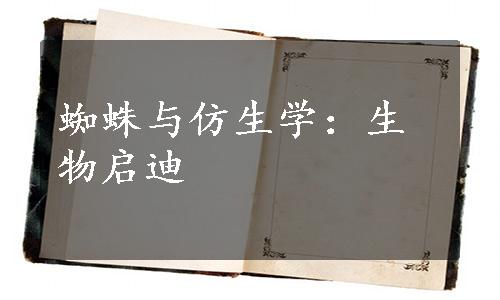 蜘蛛与仿生学：生
物启迪